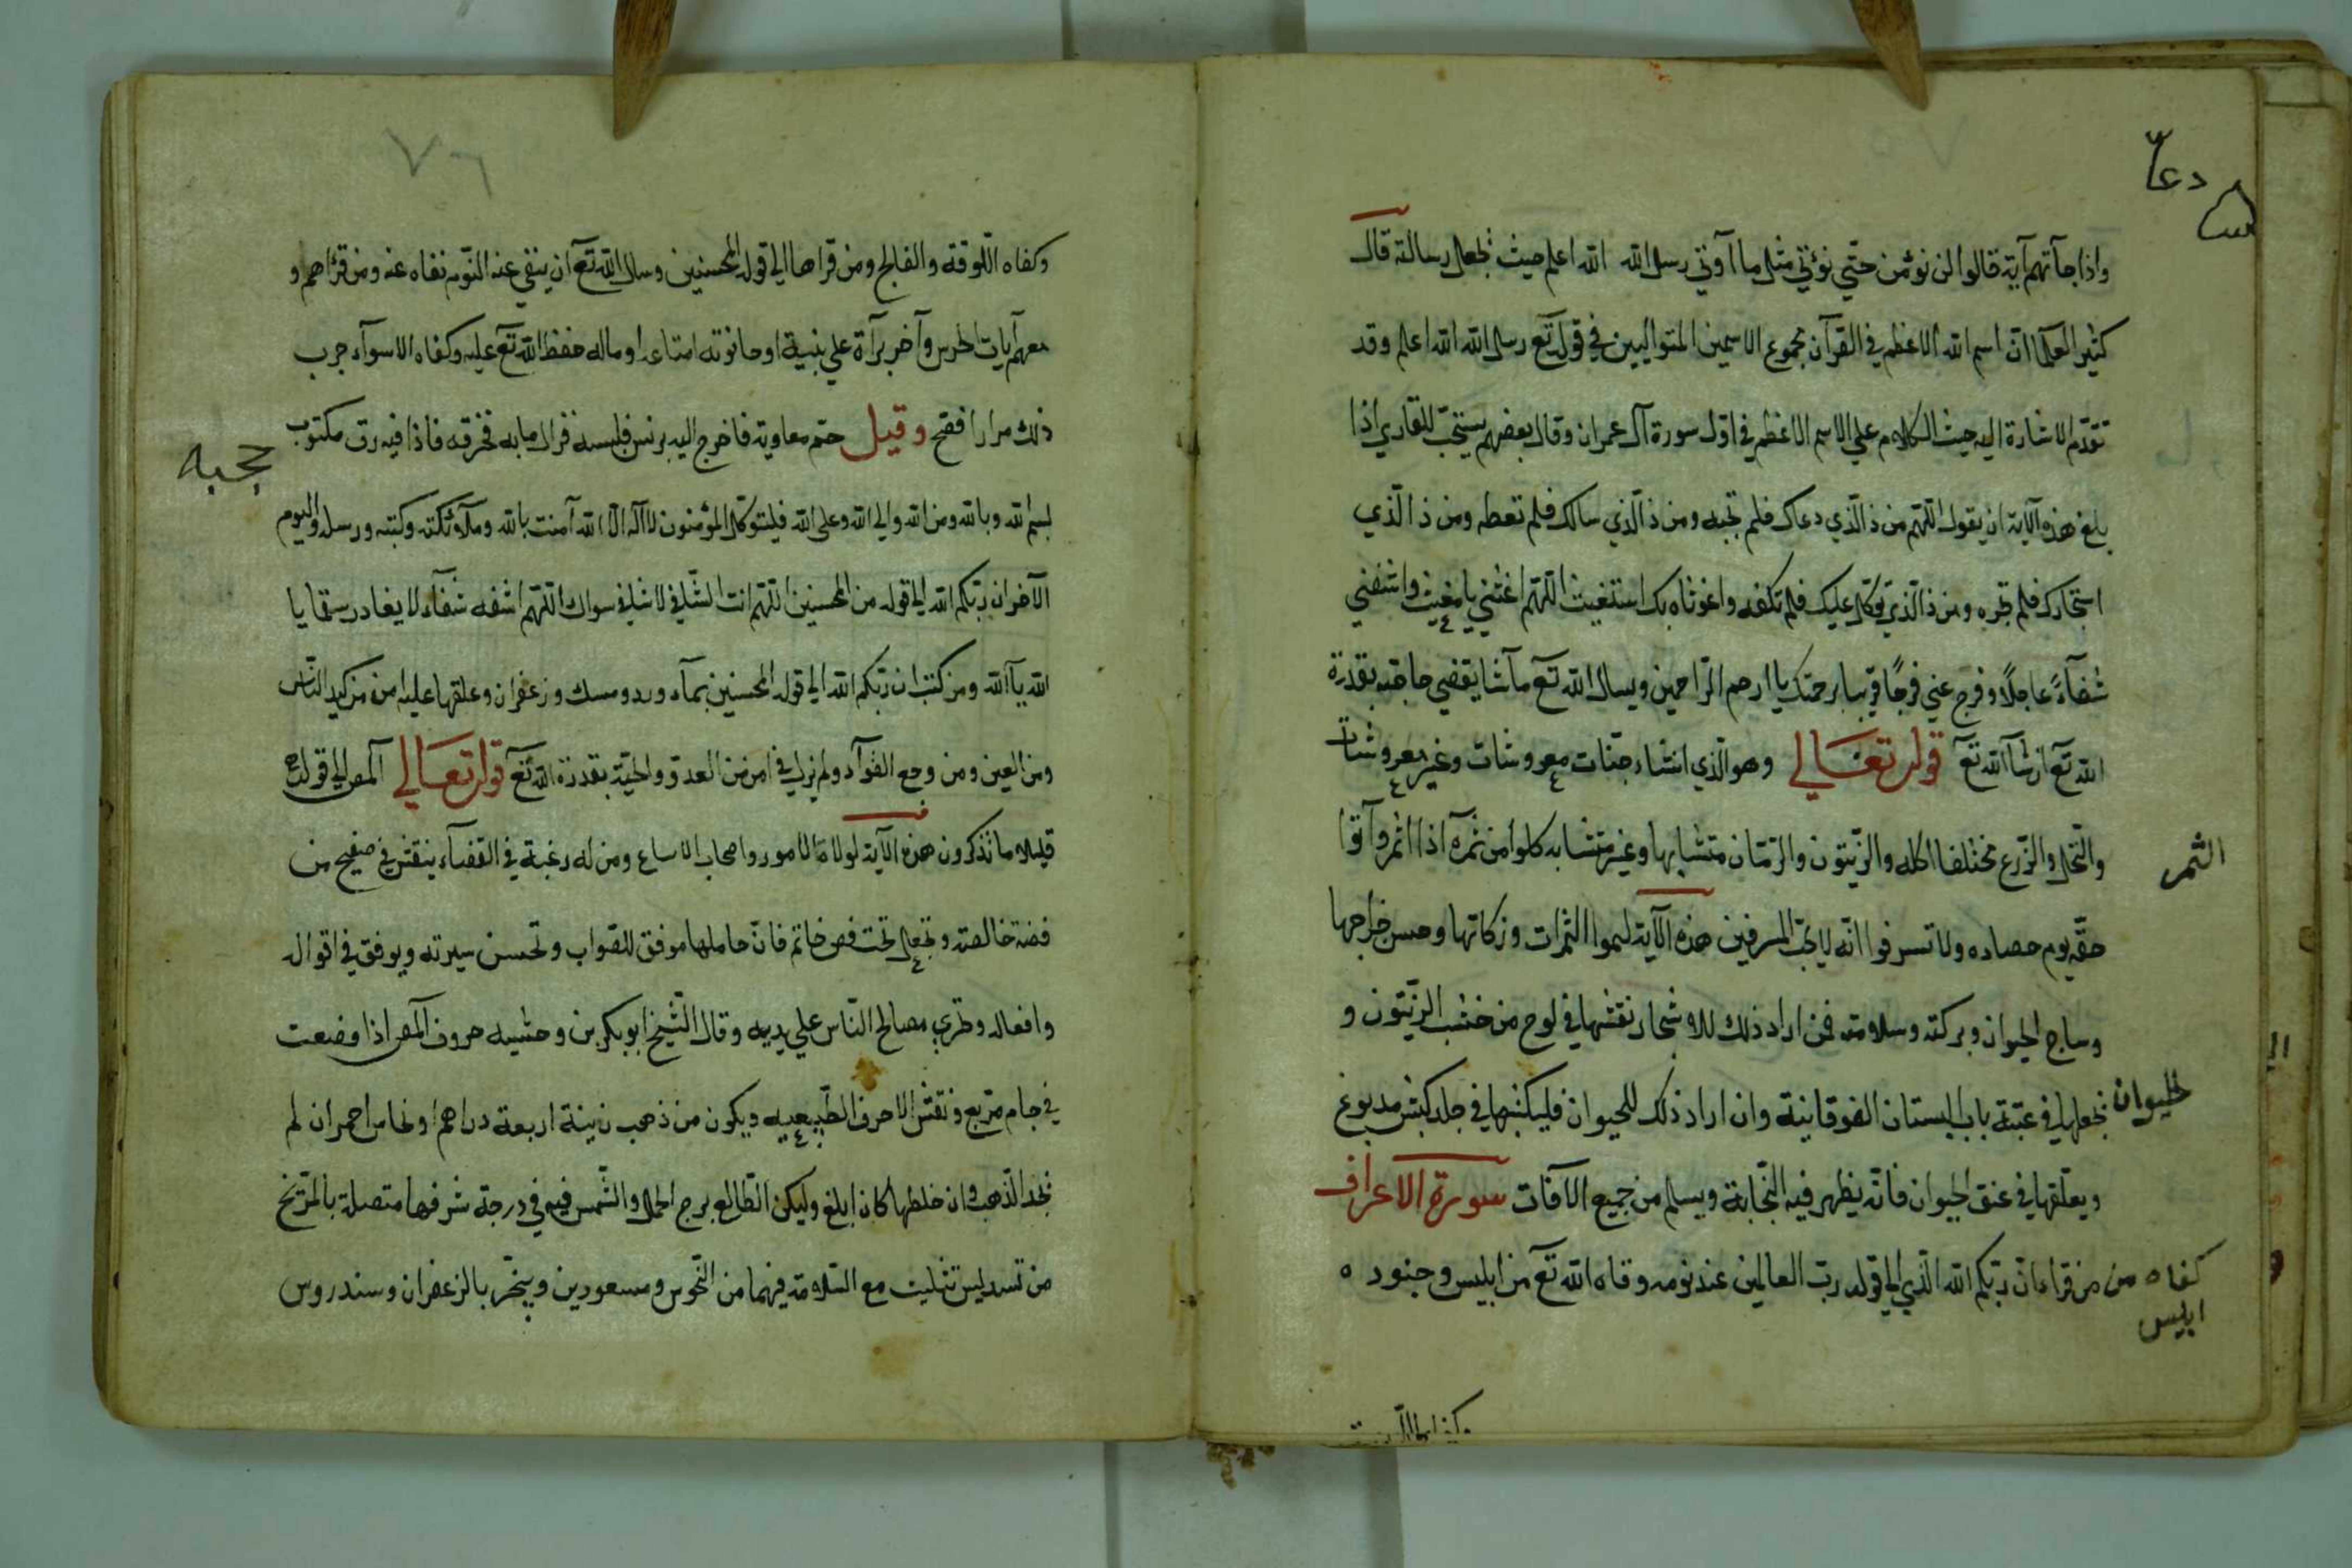 دعا
واذا جآتهم آية قالوا لن نؤمن حتّي نؤتي مثل ما آوتي رسل الله الله اعلم حيث يجعل رسالته قال
كثير العلمآ انّ اسم الله الاعظم في القرآن مجموع الاسمين المتواليين في قوله تع رسل الله الله اعلم وقد
تقدّم الاشارة اليه حيث الكلام علي الاسم الاعظم في اوّل سورة آل عمران وقال بعضهم يستحبّ للقاري اذا
بلغ هذه الآية ان يقول اللّهمّ من ذ الّذي دعاك فلم تجبه ومن ذ الّذي سالك فلم تعطه ومن ذ الّذي
استجارك فلم تجره ومن ذ الّذي توكّل عليك فلم تكفه واغوثاه بك استغيث اللّهمّ اغثني يا مغيث واشفني
شفآءً عاجلًا وفرج عني فرجًا قريبا برحمتك يا ارحم الرّاحمين ويسال الله تع مآ شا يقضي حاجته بقدرة
الله تع ان شآ الله تع قوله تعالي وهو الّذي انشاء جنّات معروشات وغير معروشات
والنّخل والزّرع مختلفا اكله والزّيتون والرّمّان متشابها وغير متشابه كلوا من ثمره اذا اثمر وآتوا
الثمر
حقّه يوم حصاده ولا تسرفوا انّه لا يحبّ المسرفين هذه الآية لنموا الثمرات وزكاتها وحسن خراجها
وساج الحيوان وبركته وسلامته فمن اراد ذلك للاشجار نقشها في لوح من خشب الزّيتون و
يجعلها في عتبة باب البستان الفوقانية وان اراد ذلك للحيوان فليكتبها في جلد كبش مدبوغ
الحيوان
ويعلّقها في عنق الحيوان فانّه يظهر فيه النّجابة ويسلم من جميع الآفات سورة الاعراف
من قراء انّ ربّكم الله الّذي الي قوله ربّ العالمين عند نومه وقاه الله تع من ابليس وجنوده
كفاه من
ابليس
٧٦
وكفاه اللّوقة والفالج ومن قراها الي قوله المحسنين وسال الله تع آن ينفي عنه النّوم نفاه عنه ومن قراهم و
معهم آيات الحرس وآخر برآة علي بنية او حانوته امتاعه او ماله حفظ الله تع عليه وكفاه الاسوآء جرب
ذلك مرارا فصّح وقيل حمّ معاوية فاخرج اليه برنس فلبسه فزال ما به فخرقه فاذا فيه رق مكتوب
حجبه
بسم الله وبالله ومن الله والي الله وعلي الله فليتوكّل المؤمنون لا اله الّا الله آمنت بالله وملآئكته وكتبه ورسله واليوم
الآخر ان ربّكم الله الي قوله من المحسنين اللّهمّ انت الشّافي لا شافي سواك اللّهمّ اشفه شفآء لا يغادر سقما يا
الله يآ الله ومن كتب ان ربّكم الله الي قوله المحسنين بمآء ورد ومسك وزعفران وعلقها عليه امن من كيد النّاس
ومن العين ومن وجع الفوآد ولم يزل في امن من العدوّ والحيّة بقدرة الله تع قوله تعالي آلمص الي قوله
قليلا ما تذكرون هذه الآية لولاة الامور واصحاب الاساع ومن له رغبة في القضآء ينقش في صفيح من
فضة خالصة وتجعل تحت فص خاتم فانّ حاملها موفق للصّواب وتحسن سيرته ويوفق في اقواله
وافعاله وتجري مصالح النّاس علي يديه وقال الشّيخ ابو بكر بن وحشيه حروف آلمص اذا وضعت
في جام مربع ونقش الاحرف الطّبيعيه ويكون من ذهب زنية اربعة دراهم او نحاس احمر ان لم
يجد الذّهب وان خلطها كان ابلغ وليكن الطّالع برج الحمل والشّمس فيه في درجة شرفها متصلة بالمرّيخ
من تسديس تثليث مع السّلامة فيهما من النّحوس ومسعودين ويبخّر بالزعفران وسندروس